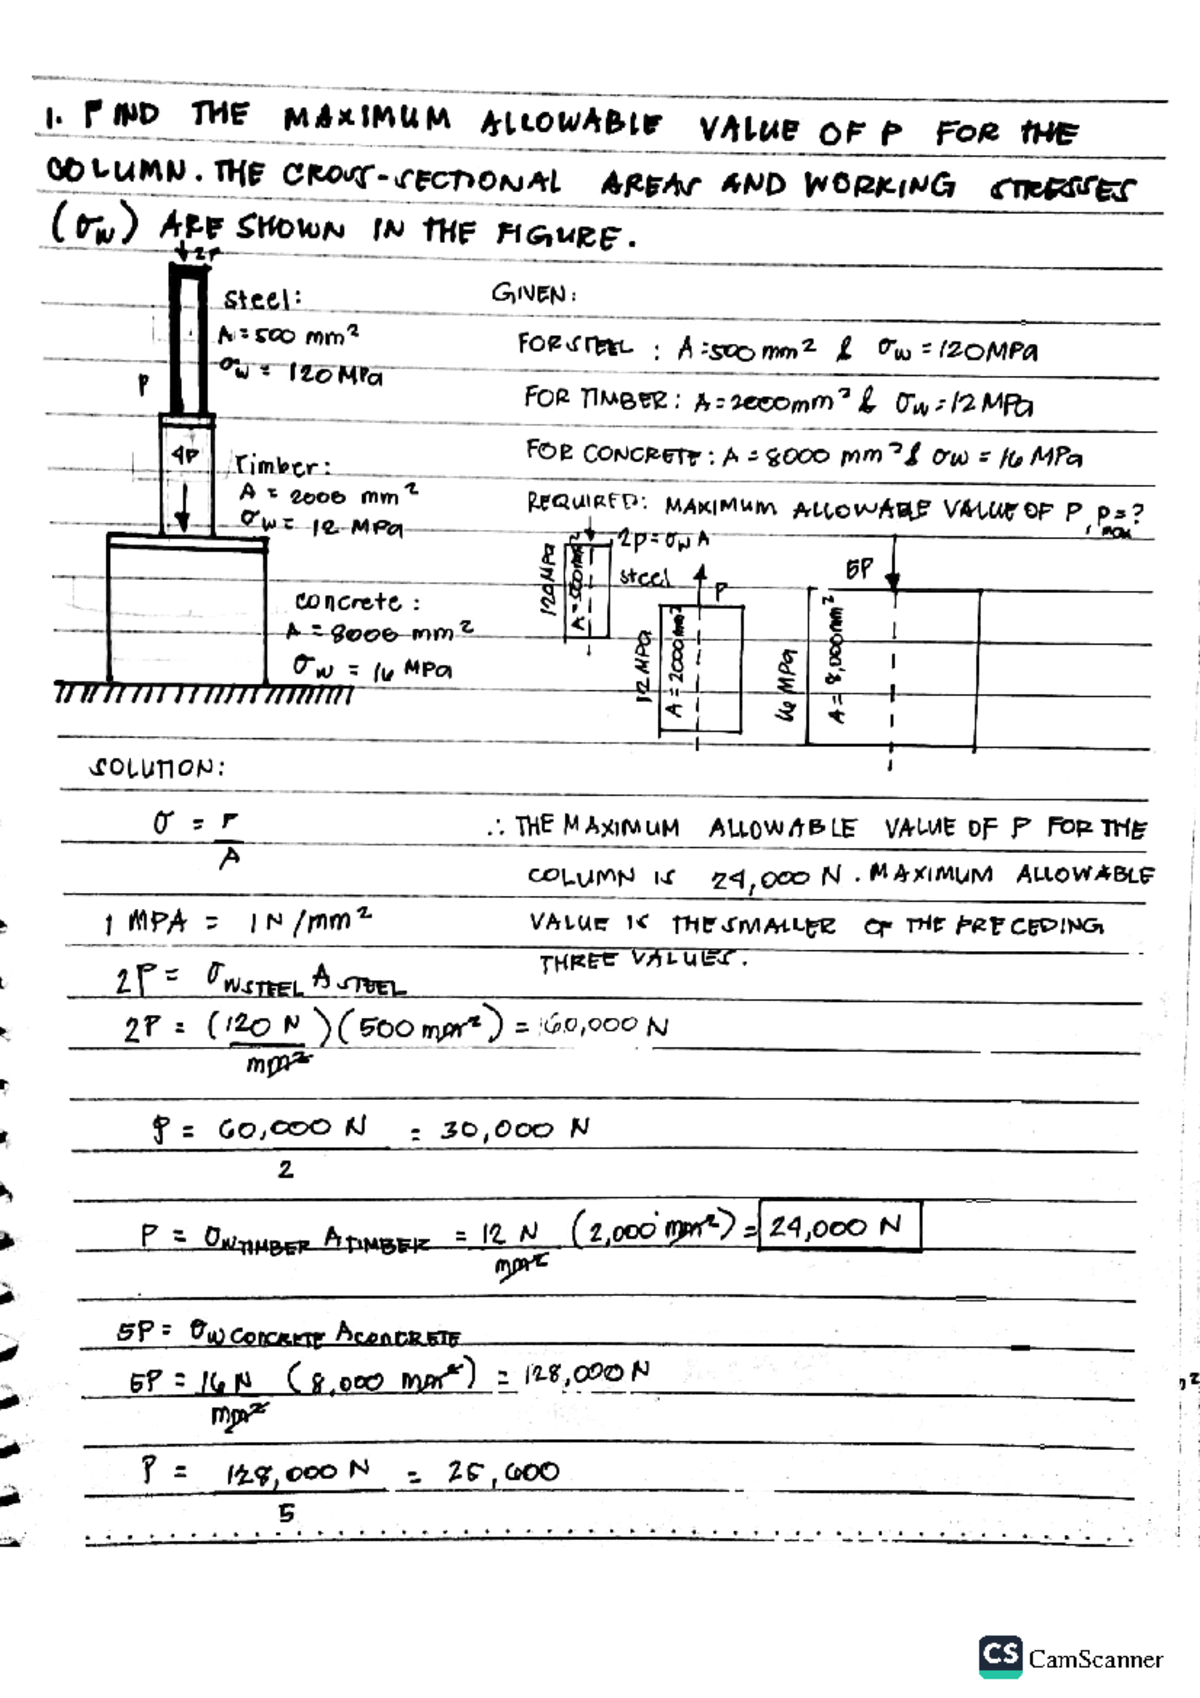 1. FIND THE MAXIMUM ALLOWABLE VALUE OF P FOR THE
COLUMN. THE CROSS-SECTIONAL AREAS AND WORKING STRESSES
(σw) ARE SHOWN IN THE FIGURE.
2P
Steel:
A = 500 mm²
σw = 120 MPa
P
4P
Timber:
A = 2000 mm²
σw = 12 MPa
concrete:
A = 8000 mm²
σw = 16 MPa
GIVEN:
FOR STEEL : A = 500 mm² & σw = 120MPa
FOR TIMBER : A = 2000mm² & σw = 12 MPa
FOR CONCRETE : A = 8000 mm² & σw = 16 MPa
REQUIRED: MAXIMUM ALLOWABLE VALUE OF P, Pmax = ?
2P = σw A
steel
120MPa
A = 500mm²
P
12 MPa
A = 2000mm²
5P
16 MPa
A = 8,000mm²
SOLUTION:
σ = P
A
1 MPA = 1 N/mm²
2P = σW STEEL A STEEL
2P = (120 N)(500 mm²) = 60,000 N
mm²
P = 60,000 N = 30,000 N
2
P = σW TIMBER A TIMBER = 12 N (2,000 mm²) = 24,000 N
mm²
5P = σW CONCRETE A CONCRETE
5P = 16 N (8,000 mm²) = 128,000 N
mm²
P = 128,000 N = 25,600
5
∴ THE MAXIMUM ALLOWABLE VALUE OF P FOR THE
COLUMN IS 24,000 N. MAXIMUM ALLOWABLE
VALUE IS THE SMALLER OF THE PRECEDING
THREE VALUES.
CS CamScanner